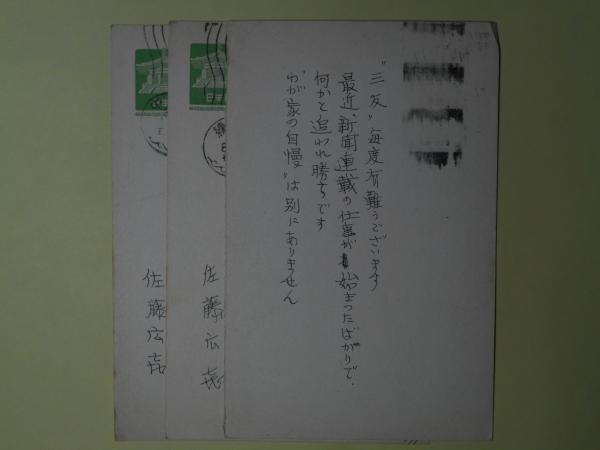 "三友"毎度有難うございます
最近、新聞連載の仕事が始まったばかりで、
何かと追われ勝ちです
"わが家の自慢"は別にありません
佐藤広喜
佐藤広喜